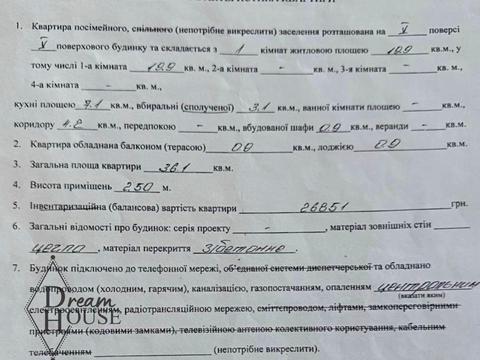 1. Квартира посімейного, спільного (непотрібне викреслити) заселення розташована на V поверсі
V поверхового будинку та складається з 1 кімнат житловою площею 19.9 кв.м., у
тому числі 1-а кімната 19.9 кв. м., 2-а кімната - кв.м., 3-я кімната - кв. м.,
4-а кімната - кв. м.,
кухні площею 7.1 кв.м., вбиральні (сполученої) 3.1 кв.м., ванної кімнати площею - кв.м.,
коридору 4.2 кв.м., передпокою - кв.м., вбудованої шафи 0.9 кв.м., веранди - кв.м.
2. Квартира обладнана балконом (терасою) 0.0 кв.м., лоджією 0.9 кв.м.
3. Загальна площа квартири 36.1 кв.м.
4. Висота приміщень 2.50 м.
5. Інвентаризаційна (балансова) вартість квартири 26851 грн.
6. Загальні відомості про будинок: серія проекту -, матеріал зовнішніх стін
цегла, матеріал перекриття з/бетонне.
7. Будинок підключено до телефонної мережі, об'єднаної системи диспетчерської та обладнано
водопроводом (холодним, гарячим), каналізацією, газопостачанням, опаленням центральним
(вказати яким)
електроосвітленням, радіотрансляційною мережею, сміттєпроводом, ліфтами, замкопереговорними
пристроями (кодовими замками), телевізійною антеною колективного користування, кабельним
телебаченням (непотрібне викреслити).
Dream
HOUSE